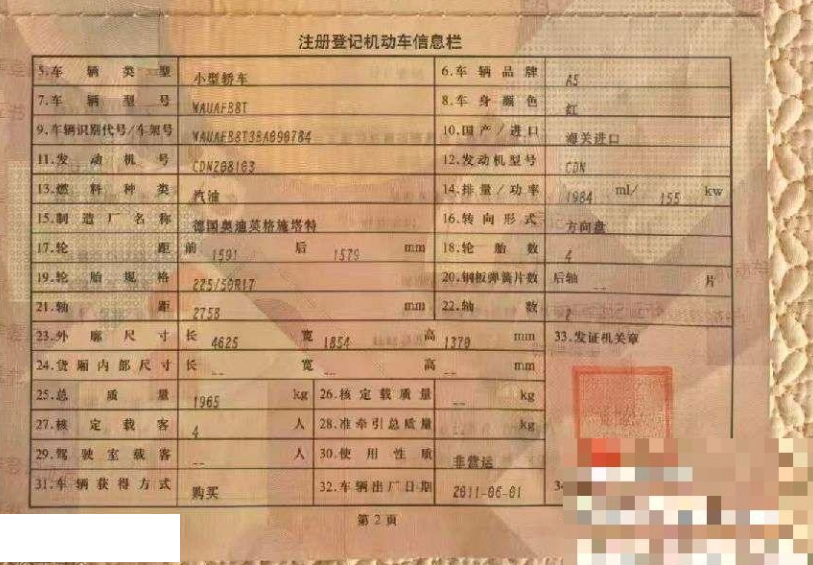 注册登记机动车信息栏
5.车辆类型 小型轿车 6.车辆品牌 A5
7.车辆型号 WAUAFB8T 8.车身颜色 红
9.车辆识别代号/车架号 10.国产/进口 海关进口
11.发动机号 CDNZ08103 12.发动机型号 CDN
13.燃料种类 汽油 14.排量/功率 1984 ml/ 155 kw
15.制造厂名称 德国奥迪英格施塔特 16.转向形式 方向盘
17.轮距 前 1591 后 1579 mm 18.轮胎数 4
19.轮胎规格 225/50R17 20.钢板弹簧片数 后轴 -- 片
21.轴距 2753 mm 22.轴数 2
23.外廓尺寸 长 4625 宽 1854 高 1370 mm 33.发证机关章
24.货厢内部尺寸 长 -- 宽 -- 高 -- mm
25.总质量 1965 kg 26.核定载质量 -- kg
27.核定载客 4 人 28.准牵引总质量 -- kg
29.驾驶室载客 -- 人 30.使用性质 非营运
31.车辆获得方式 购买 32.车辆出厂日期 2011-06-01
第2页